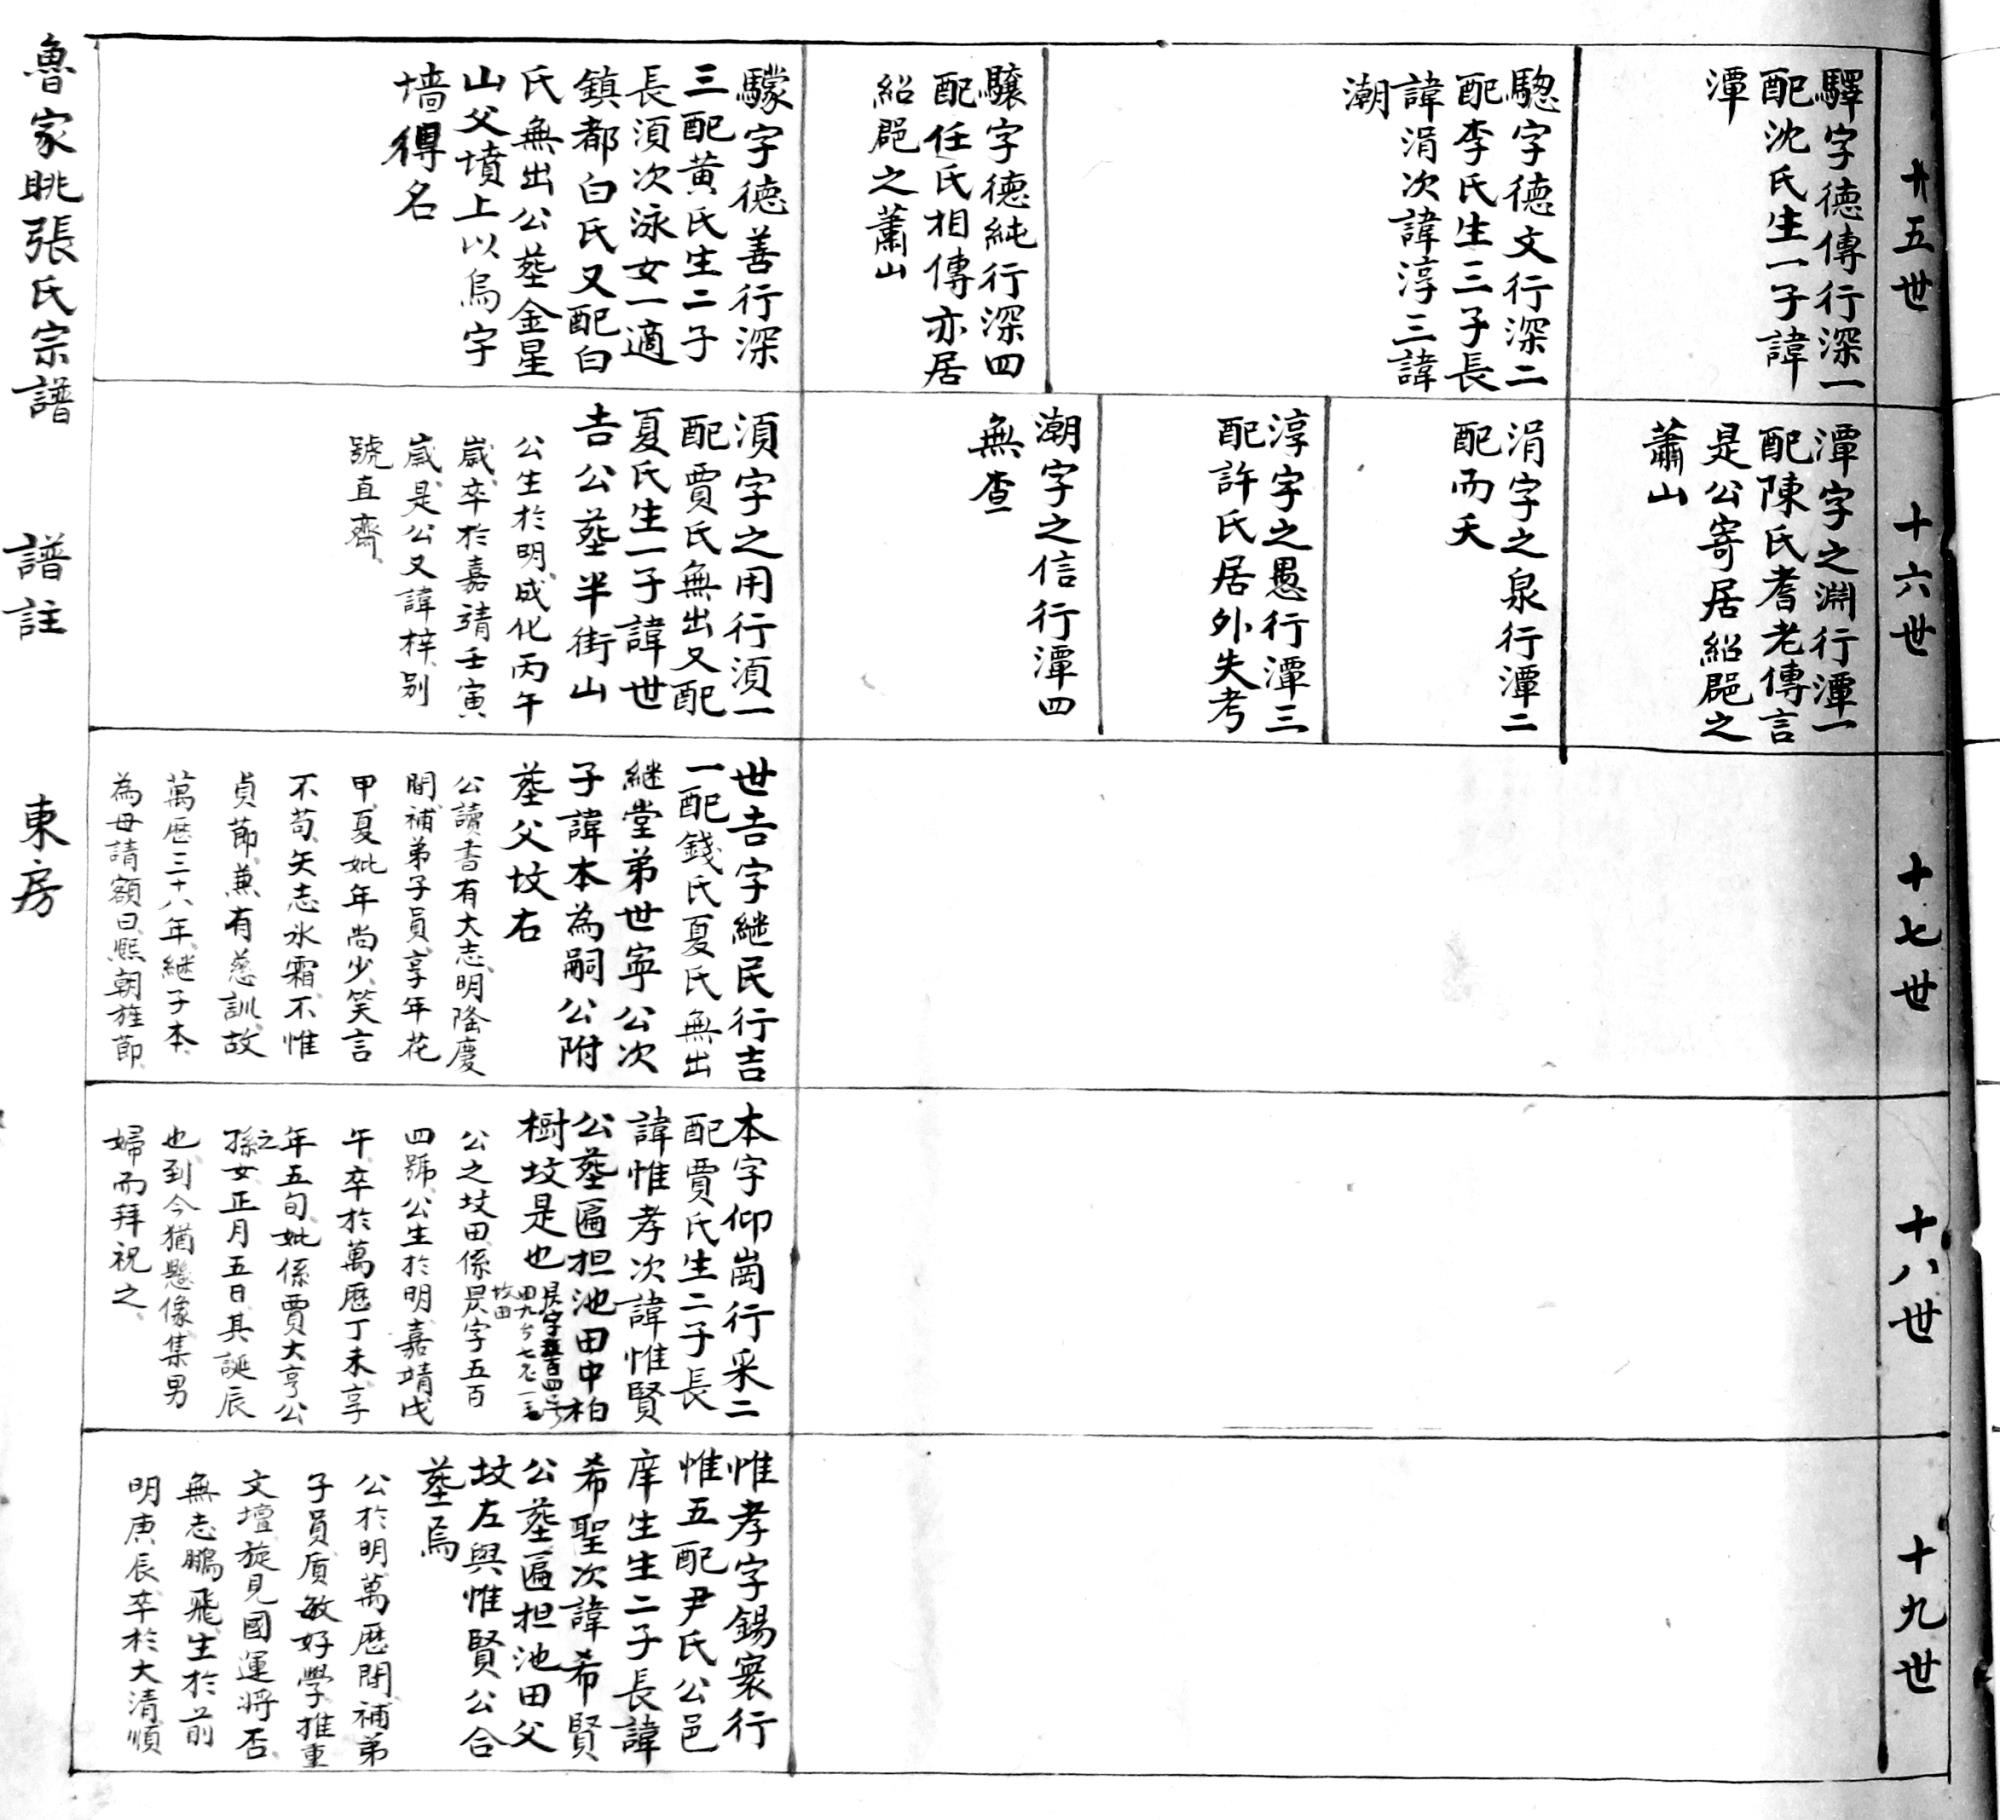 十五世
驛字德傳行深一
配沈氏生一子諱
潭
騘字德文行深二
配李氏生三子長
諱涓次諱淳三諱
潮
驤字德純行深四
配任氏相傳亦居
紹郡之蕭山
驜字德善行深
三配黃氏生二子
長湏次泳女一適
鎮都白氏又配白
氏無出公塟金星
山父墳上以烏字
墙得名
十六世
潭字之淵行潭一
配陳氏耆老傳言
是公寄居紹郡之
蕭山
涓字之泉行潭二
配而夭
淳字之愚行潭三
配許氏居外失考
潮字之信行潭四
無查
湏字之用行湏一
配賈氏無出又配
夏氏生一子諱世
吉公塟半街山
公生於明成化丙午
歲卒於嘉靖壬寅
歲是公又諱梓别
號直齋
十七世
世吉字継民行吉
一配錢氏夏氏無出
継堂弟世寧公次
子諱本為嗣公附
塟父坟右
公讀書有大志明隆慶
間補弟子員享年花
甲夏妣年尚少笑言
不苟矢志氷霜不惟
貞節兼有慈訓故
萬厯三十八年継子本
為母請額曰熙朝旌節
十八世
本字仰崗行采二
配賈氏生二子長
諱惟孝次諱惟賢
公塟匾担池田中柏
樹坟是也
公之坟田係昃字五百
四號公生於明嘉靖戊
午卒於萬厯丁未享
年五旬妣係賈大亨公
之孫女正月五日其誕辰
也到今猶懸像集男
婦而拜祝之
十九世
惟孝字錫寰行
惟五配尹氏公邑
庠生生二子長諱
希聖次諱希賢
公塟匾担池田父
坟左與惟賢公合
塟焉
公於明萬厯間補弟
子員質敏好學推重
文壇旋見國運將否
無志鵬飛生於前
明庚辰卒於大清順
魯家眺張氏宗譜 譜註 東房